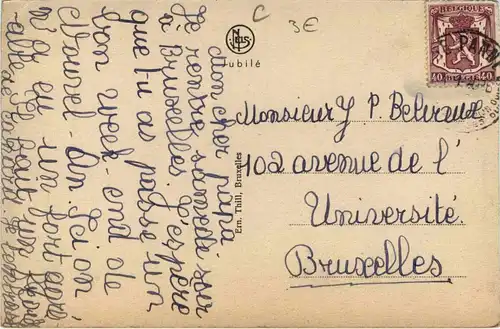 C
3€
Nels
Jubilé
BELGIQUE
40 40
PANNE
Mon cher papa
Je rentre samedi soir
à Bruxelles. J'espère
que tu as passé un
bon week-end de
nouvel-An. Ici on
n'a eu un fort
Ern. Thill, Bruxelles
Monsieur J P.
102 avenue de l'
Université.
Bruxelles